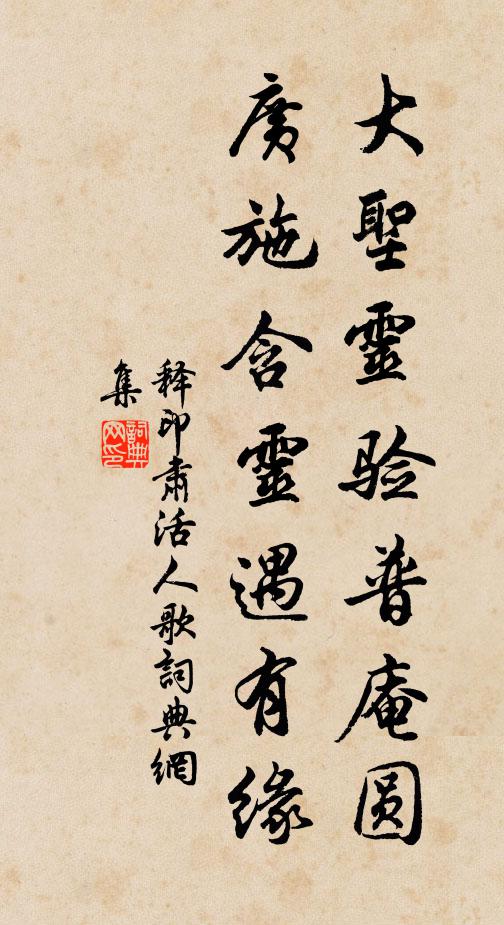 大聖靈验普庵圆
廣施含靈遇有緣
释印肅活人歌詞典網
集
詞典
网印